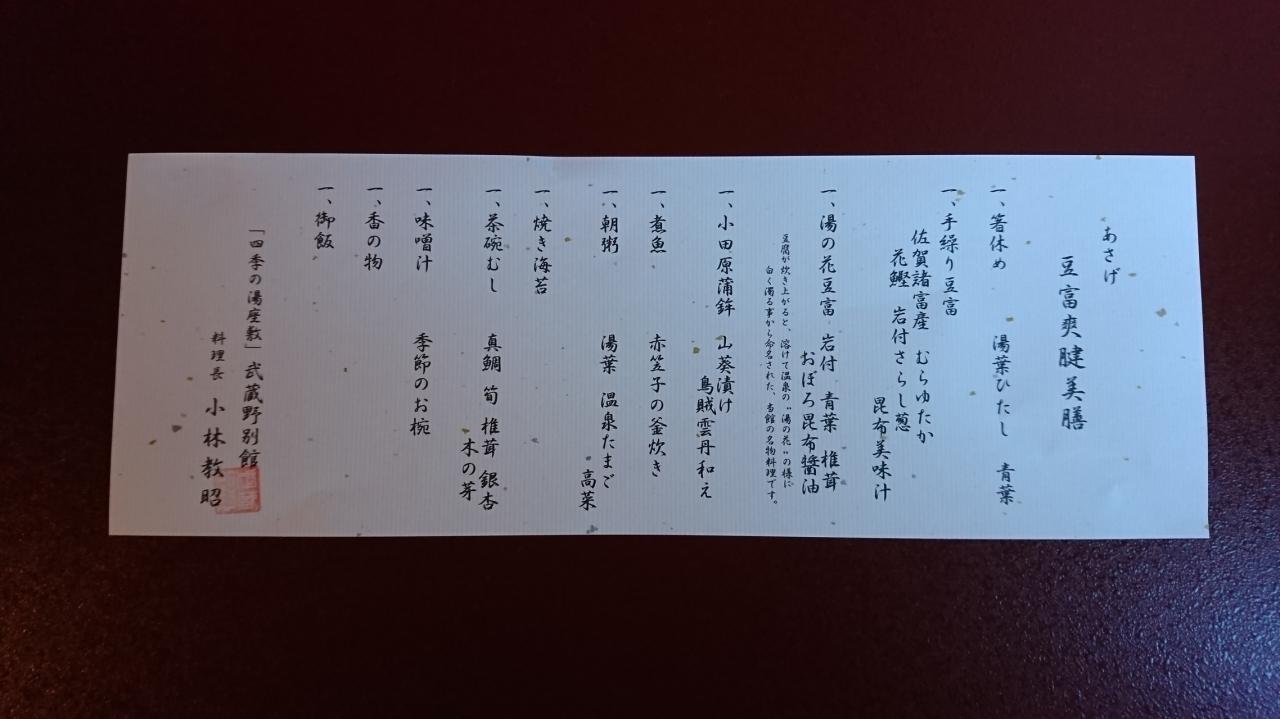 あさげ
豆富爽腱美膳
一、箸休め 湯葉ひたし 青葉
一、手繰り豆富
佐賀諸富産 むらゆたか
花鰹 岩付さらし葱
昆布美味汁
一、湯の花豆富 岩付 青葉 椎茸
おぼろ昆布醤油
豆腐が炊き上がると、溶けて温泉の〝湯の花〟の様に
白く濁る事から命名された、当館の名物料理です。
一、小田原蒲鉾 山葵漬け
烏賊雲丹和え
一、煮魚 赤笠子の釜炊き
一、朝粥 湯葉 温泉たまご
高菜
一、焼き海苔
一、茶碗むし 真鯛 筍 椎茸 銀杏
木の芽
一、味噌汁 季節のお椀
一、香の物
一、御飯
「四季の湯座敷」武蔵野別館
料理長 小林教昭